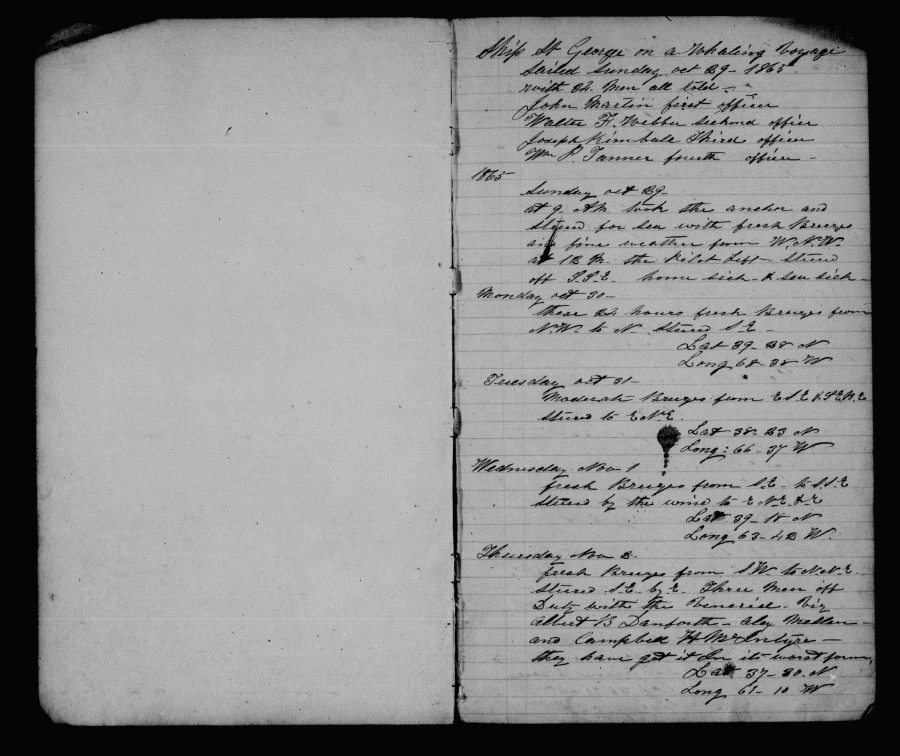 Ship St George on a Whaling Voyage
Sailed Sunday oct 29 - 1865
with 32 Men all told -
John Martin first officer
Walter H. Webber seckond officer
Joseph Kimball Third officer
Wm P. Tanner fourth officer -
1865
Sunday oct 29 -
at 9 - AM took the anchor and
steerd for sea with fresh Breezes
and fine weather from W.N.W.
at 12 M. the Pilot Left - steerd
off S.S.E. home sick - & sea sick -
Monday oct 30 -
these 24 hours fresh Breezes from
N.W. to N - steerd S.E -
Lat 39 - 28 N
Long 68 - 38 W
Tuesday oct 31 -
Moderate Breezes from E.S.E &
steerd to E.N.E.
Lat 38 - 23 N
Long : 66 - 37 W
Wednesday Nov 1
fresh Breezes from S.E - to S.S.E
steerd by the wind to E N.E. & E
Lat 39 - 18 N
Long 63 - 42 W.
Thursday Nov 2.
fresh Breezes from S.W. to N.N.E.
steerd S.E. by E. Three Men off
Duty with the Veneriel - Viz
Albert B Danforth - Aley -
and Campbell H McIntyre -
they have got it In its worst form,
Lat 37 - 30 N
Long 61 - 10 W